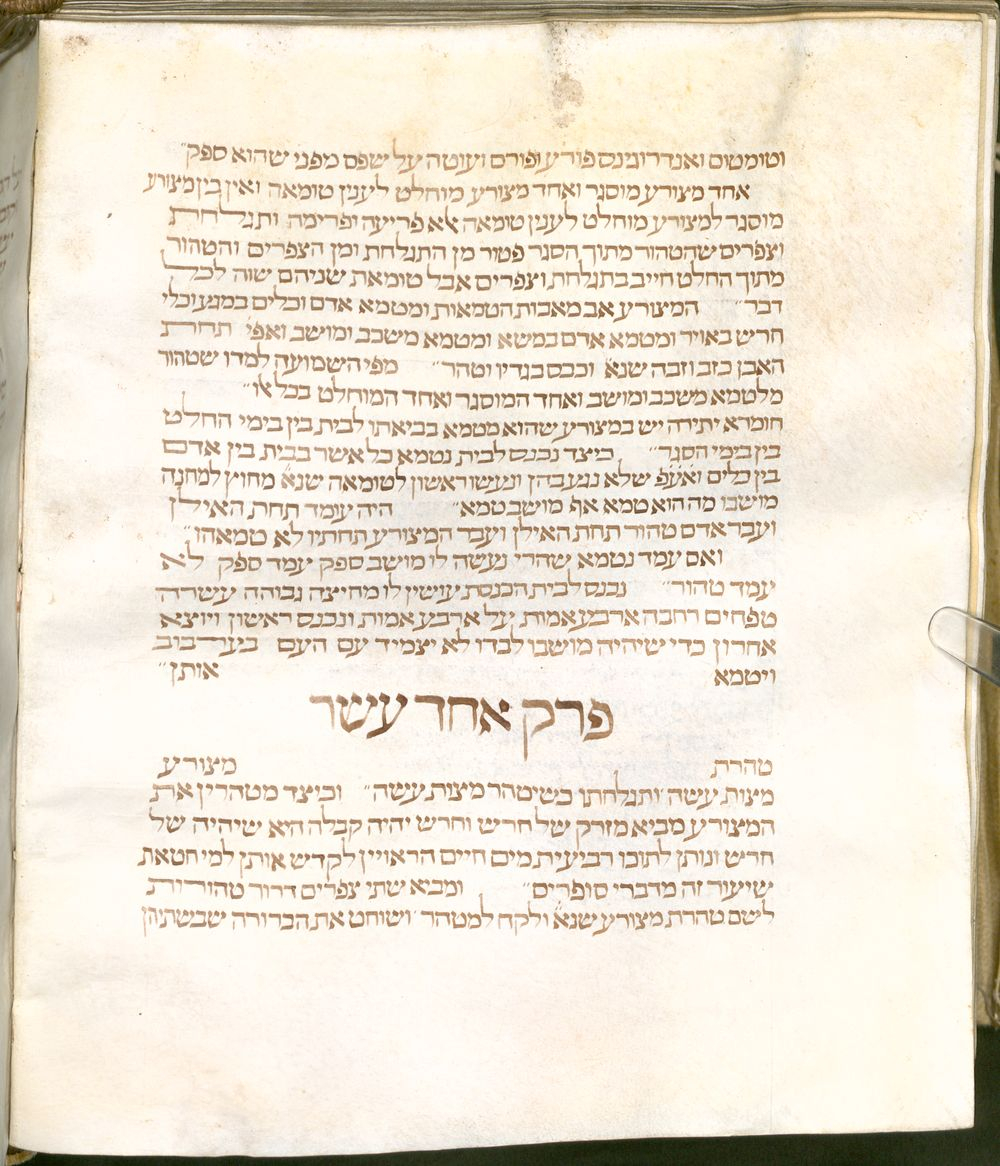 וטומטום ואנדרוגינס פורע ופורם ועוטה על שפם מפני שהוא ספק״
אחד מצורע מוסגר ואחד מצורע מוחלט לענין טומאה ואין בין מצורע
מוסגר למצורע מוחלט לענין טומאה אלא פריעה ופרימה ותגלחת
וצפרים שהטהור מתוך הסגר פטור מן התגלחת ומן הצפרים והטהור
מתוך החלט חייב בתגלחת וצפרים אבל טומאת שניהם שוה לכל
דבר״ המצורע אב מאבות הטמאות ומטמא אדם וכלים במגעו וכלי
חרש באויר ומטמא אדם במשא ומטמא משכב ומושב ואפי׳ תחת
האבן כזב וזבה שנא׳ וכבס בגדיו וטהר״ מפי השמועה למדו שטהור
מלטמא משכב ומושב ואחד המוסגר ואחד המוחלט בכל או״
חומרא יתירה יש במצורע שהוא מטמא בביאתו לבית בין בימי החלט
בין בימי הסגר״ כיצד נכנס לבית נטמא כל אשר בבית בין אדם
בין כלים ואעפ שלא נגע בהן ונעשו ראשון לטומאה שנא׳ מחוץ למחנה
מושבו מה הוא טמא אף מושבו טמא״ היה עומד תחת האילן
ועבר אדם טהור תחת האילן ועבר המצורע תחתיו לא טמאהו״
ואם עמד נטמא שהרי נעשה לו מושב ספק עמד ספק לא
עמד טהור״ נכנס לבית הכנסת עושין לו מחיצה גבוהה עשרה
טפחים רחבה ארבע אמות על ארבע אמות ונכנס ראשון ויוצא
אחרון כדי שיהיה מושבו לבדו לא יצמיד עם העם בערבוב
ויטמא אותן״
פרק אחד עשר
טהרת מצורע
מצות עשה ותגלחתו כשיטהר מצות עשה״ וכיצד מטהרין את
המצורע מביא מזרק של חרש וחרש יהיה קבלה היא שיהיה של
חרש ונותן לתוכו רביעית מים חיים הראויין לקדש אותן למי חטאת
שיעור זה מדברי סופרים״ ומביא שתי צפרים דרור טהורות
לשם טהרת מצורע שנא׳ ולקח למטהר ושוחט את הברורה שבשתיהן